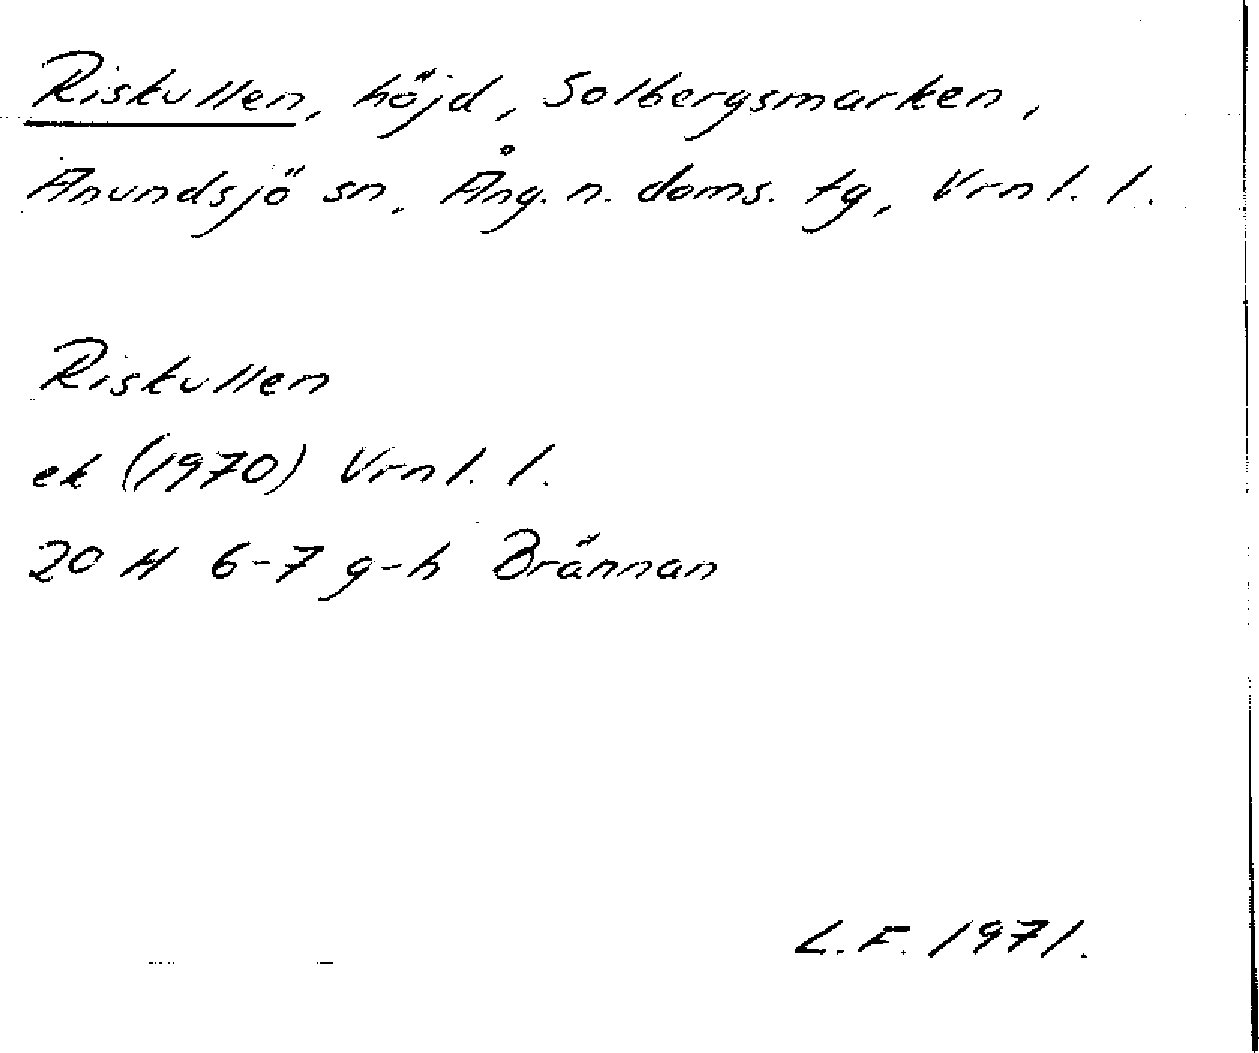 Riskullen, höjd, Solbergsmarken,
Anundsjö sn. Ång. n. doms. tg, Vrnl. l.
Riskullen
ek (1970) Vrnl. l.
20 H 6-7 g-h Brännan
L.F. 1971.